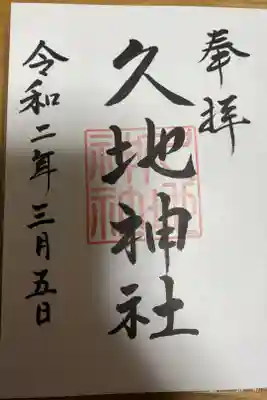 奉拝
久地神社
令和二年三月五日